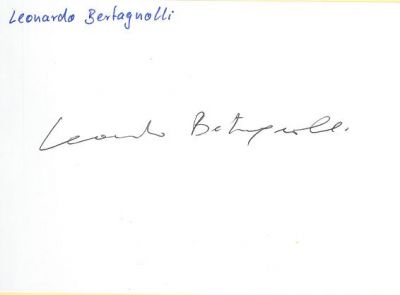 Leonardo Bertagnolli
Leonardo Bertagnolli